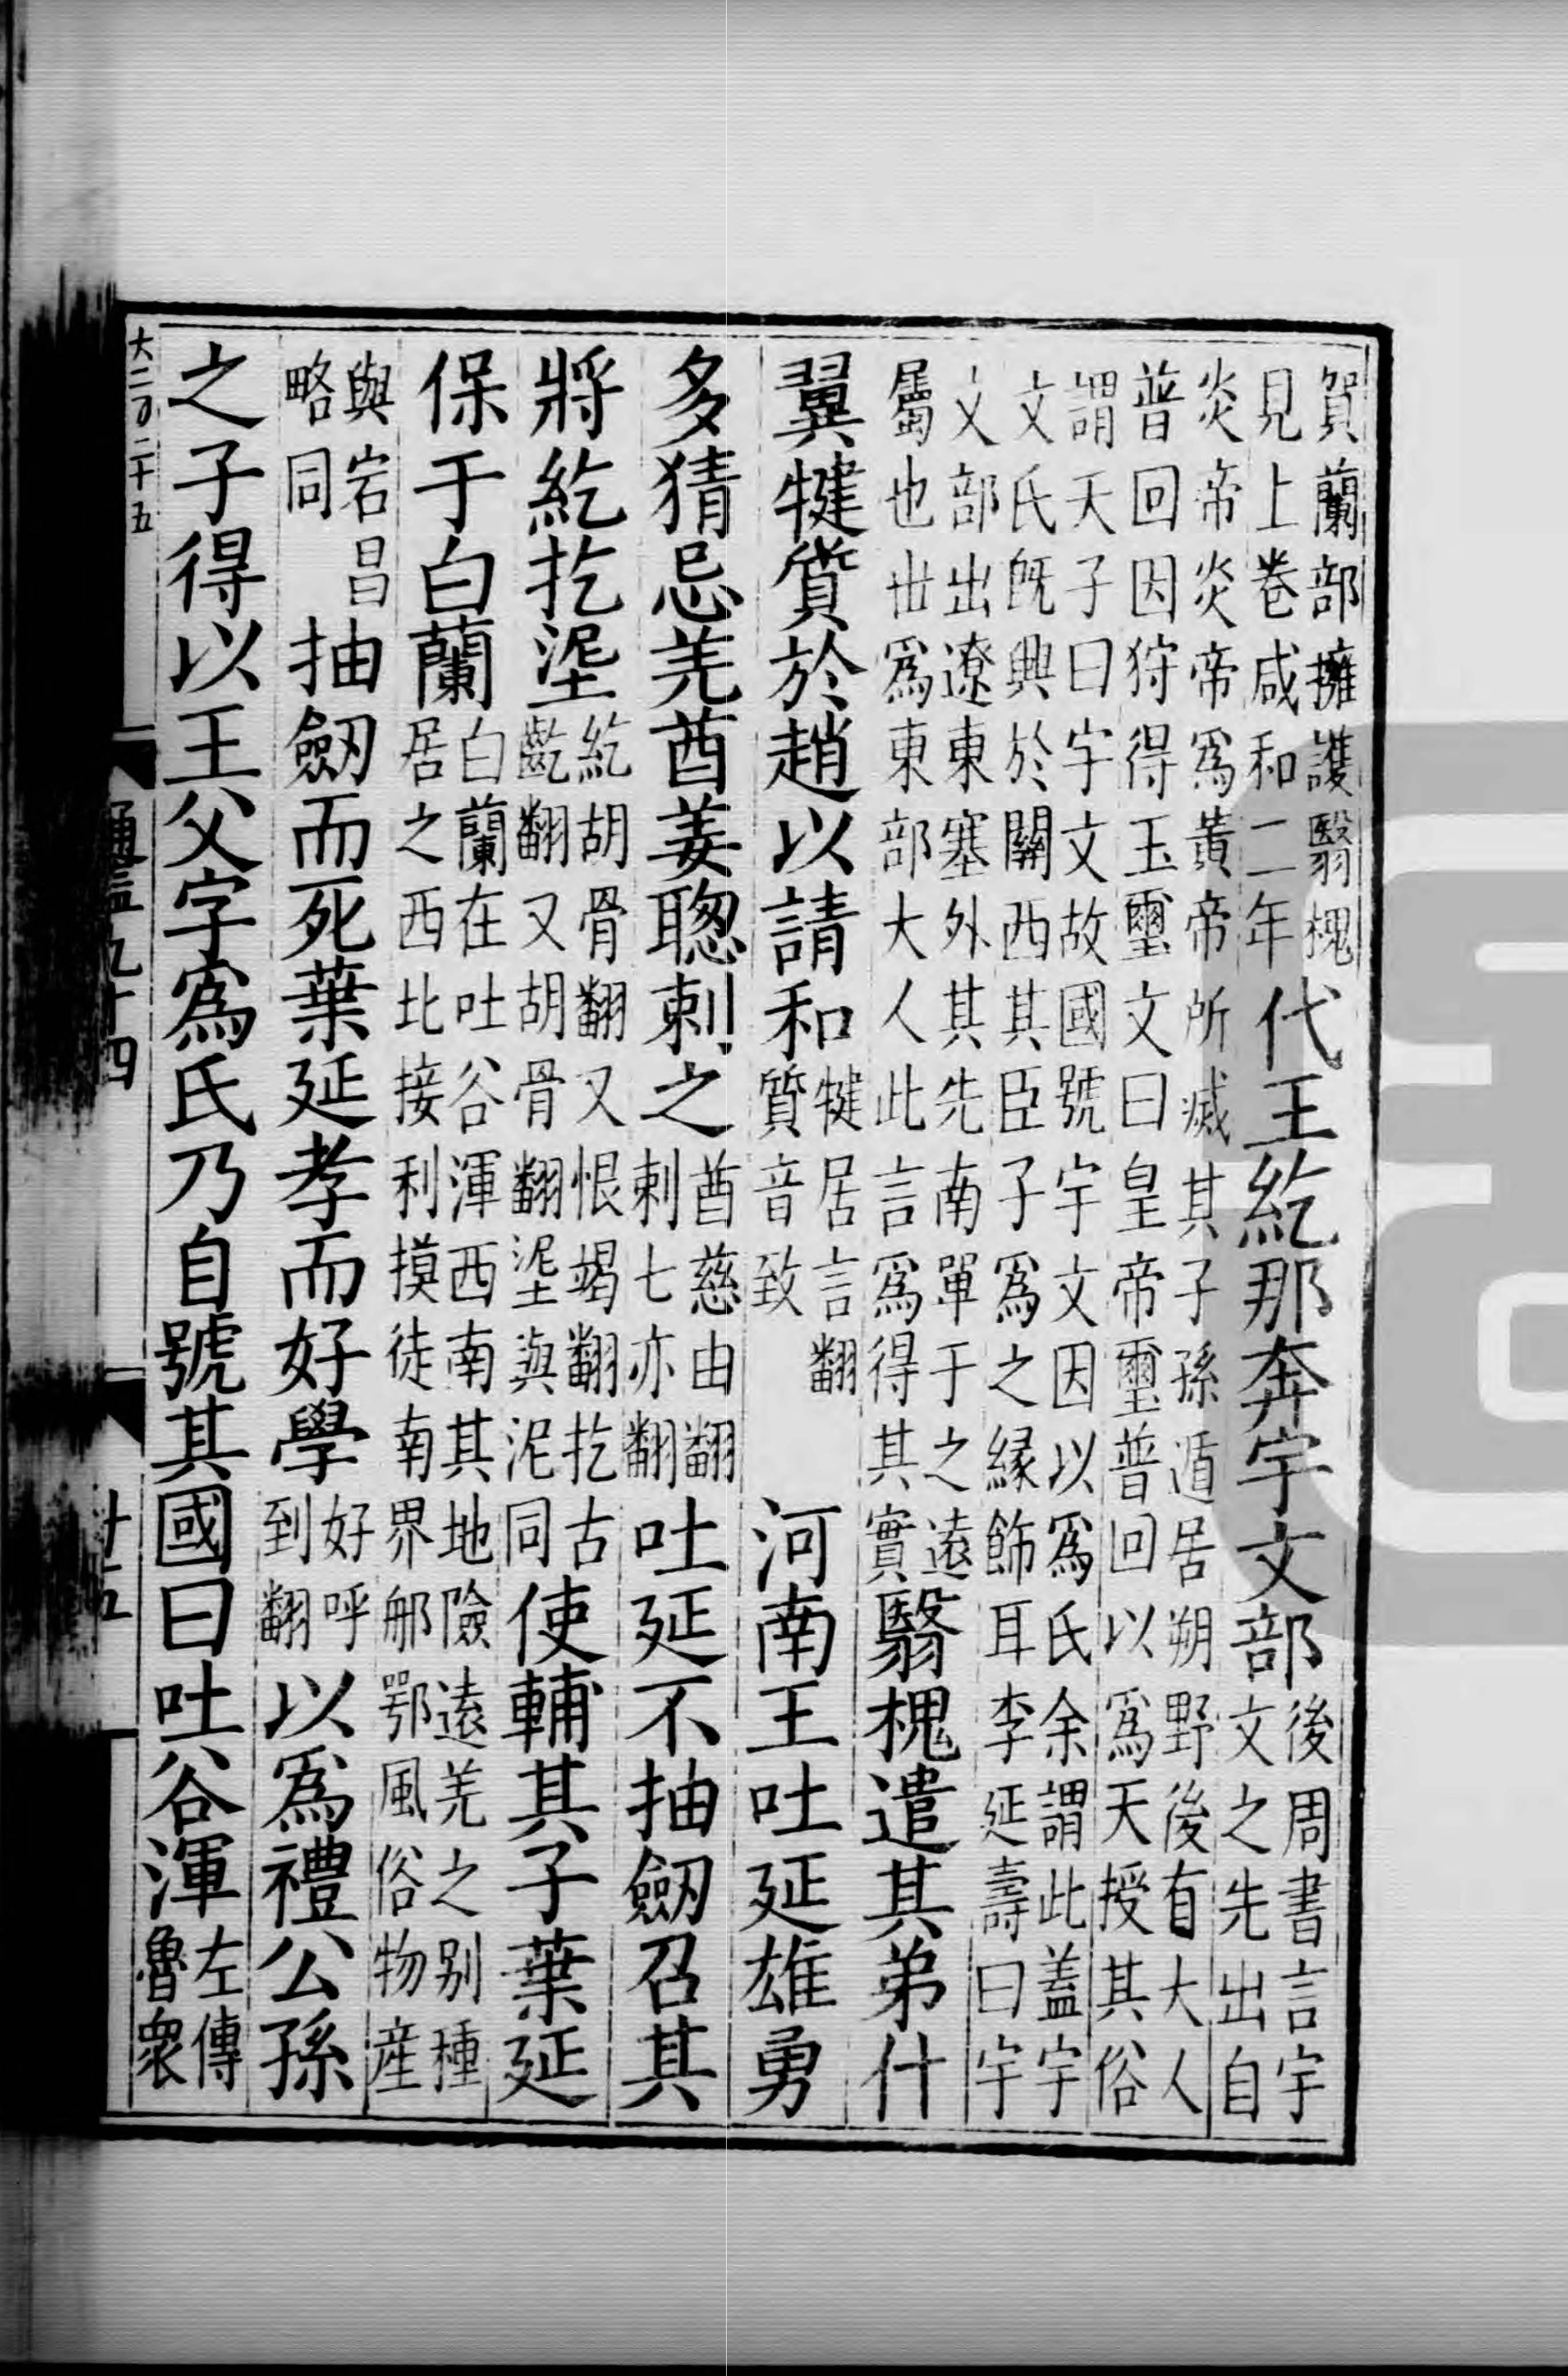 賀蘭部擁護翳槐
見上卷咸和二年
代王紇那奔宇文部
後周書言宇
文之先出自
炎帝炎帝爲黃帝所滅其子孫遁居朔野後有大人
普回因狩得玉璽文曰皇帝璽普回以爲天授其俗
謂天子曰宇文故國號宇文因以爲氏余謂此蓋宇
文氏旣興於關西其臣子爲之緣飾耳李延壽曰宇
文部出遼東塞外其先南單于之遠
屬也丗爲東部大人此言爲得其實
翳槐遣其弟什
翼犍質於趙以請和
犍居言翻
質音致
河南王吐延雄勇
多猜忌羌酋姜聰刺之
酋慈由翻
刺七亦翻
吐延不抽劒召其
將紇扢埿
紇胡骨翻又恨竭翻扢古
齕翻又胡骨翻埿與泥同
使輔其子葉延
保于白蘭
白蘭在吐谷渾西南其地險遠羌之別種
居之西北接利摸徒南界郍鄂風俗物産
與宕昌
略同
抽劒而死葉延孝而好學
好呼
到翻
以爲禮公孫
之子得以王父字爲氏乃自號其國曰吐谷渾
左傳
魯衆
大二百二十五
通鑑九十四
十五